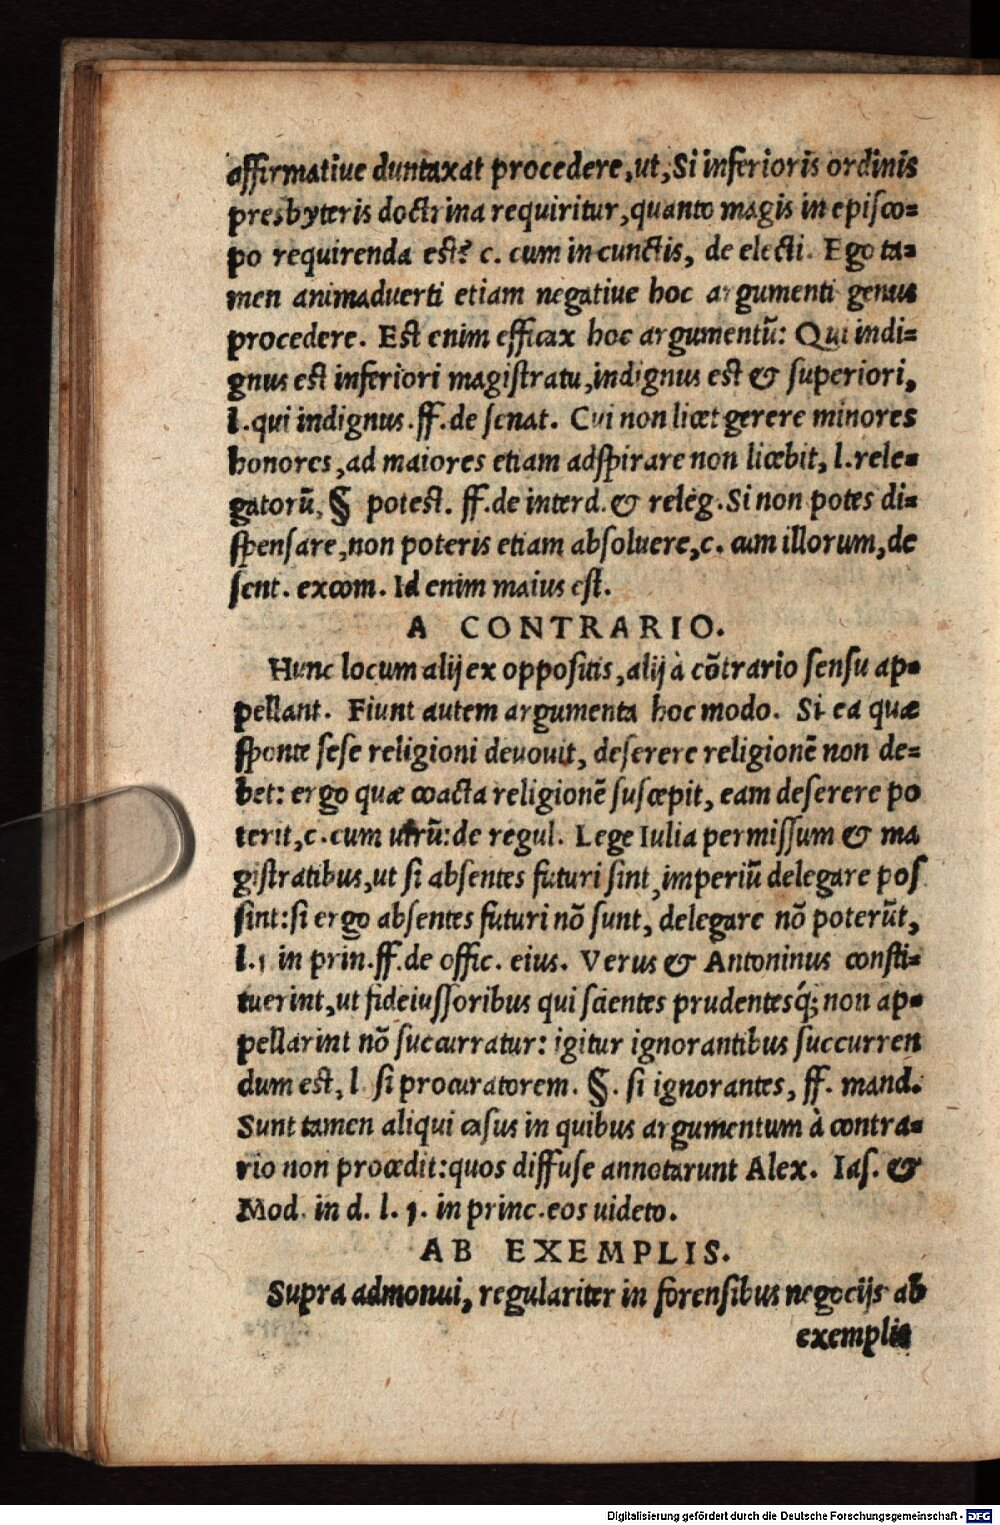 affirmatiue duntaxat procedere, ut, Si inferioris ordinis
presbyteris doctrina requiritur, quanto magis in episco=
po requirenda est? c. cum in cunctis, de electi. Ego ta=
men animaduerti etiam negatiue hoc argumenti genus
procedere. Est enim efficax hoc argumentũ: Qui indi=
gnus est inferiori magistratu, indignus est & superiori,
l. qui indignus. ff. de senat. Cui non licet gerere minores
honores, ad maiores etiam adspirare non licebit, l. rele=
gatorũ, § potest. ff. de interd. & releg. Si non potes di=
spensare, non poteris etiam absoluere, c. cum illorum, de
sent. excom. Id enim maius est.
A CONTRARIO.
Hunc locum alij ex oppositis, alij à cõtrario sensu ap=
pellant. Fiunt autem argumenta hoc modo. Si ea quæ
sponte sese religioni deuouit, deserere religionẽ non de=
bet: ergo quæ coacta religionẽ suscepit, eam deserere po
terit, c. cum utrũ: de regul. Lege Iulia permissum & ma
gistratibus, ut si absentes futuri sint, imperiũ delegare pos
sint: si ergo absentes futuri nõ sunt, delegare nõ poterũt,
l. 1 in prin. ff. de offic. eius. Verus & Antoninus consti=
tuerint, ut fideiussoribus qui scientes prudentesq́; non ap=
pellarint nõ succurratur: igitur ignorantibus succurren
dum est, l. si procuratorem. §. si ignorantes, ff. mand.
Sunt tamen aliqui casus in quibus argumentum à contra=
rio non procedit: quos diffuse annotarunt Alex. Ias. &
Mod. in d. l. 1. in princ. eos uideto.
AB EXEMPLIS.
Supra admonui, regulariter in forensibus negocijs ab
exemplis
Digitalisierung gefördert durch die Deutsche Forschungsgemeinschaft - DFG